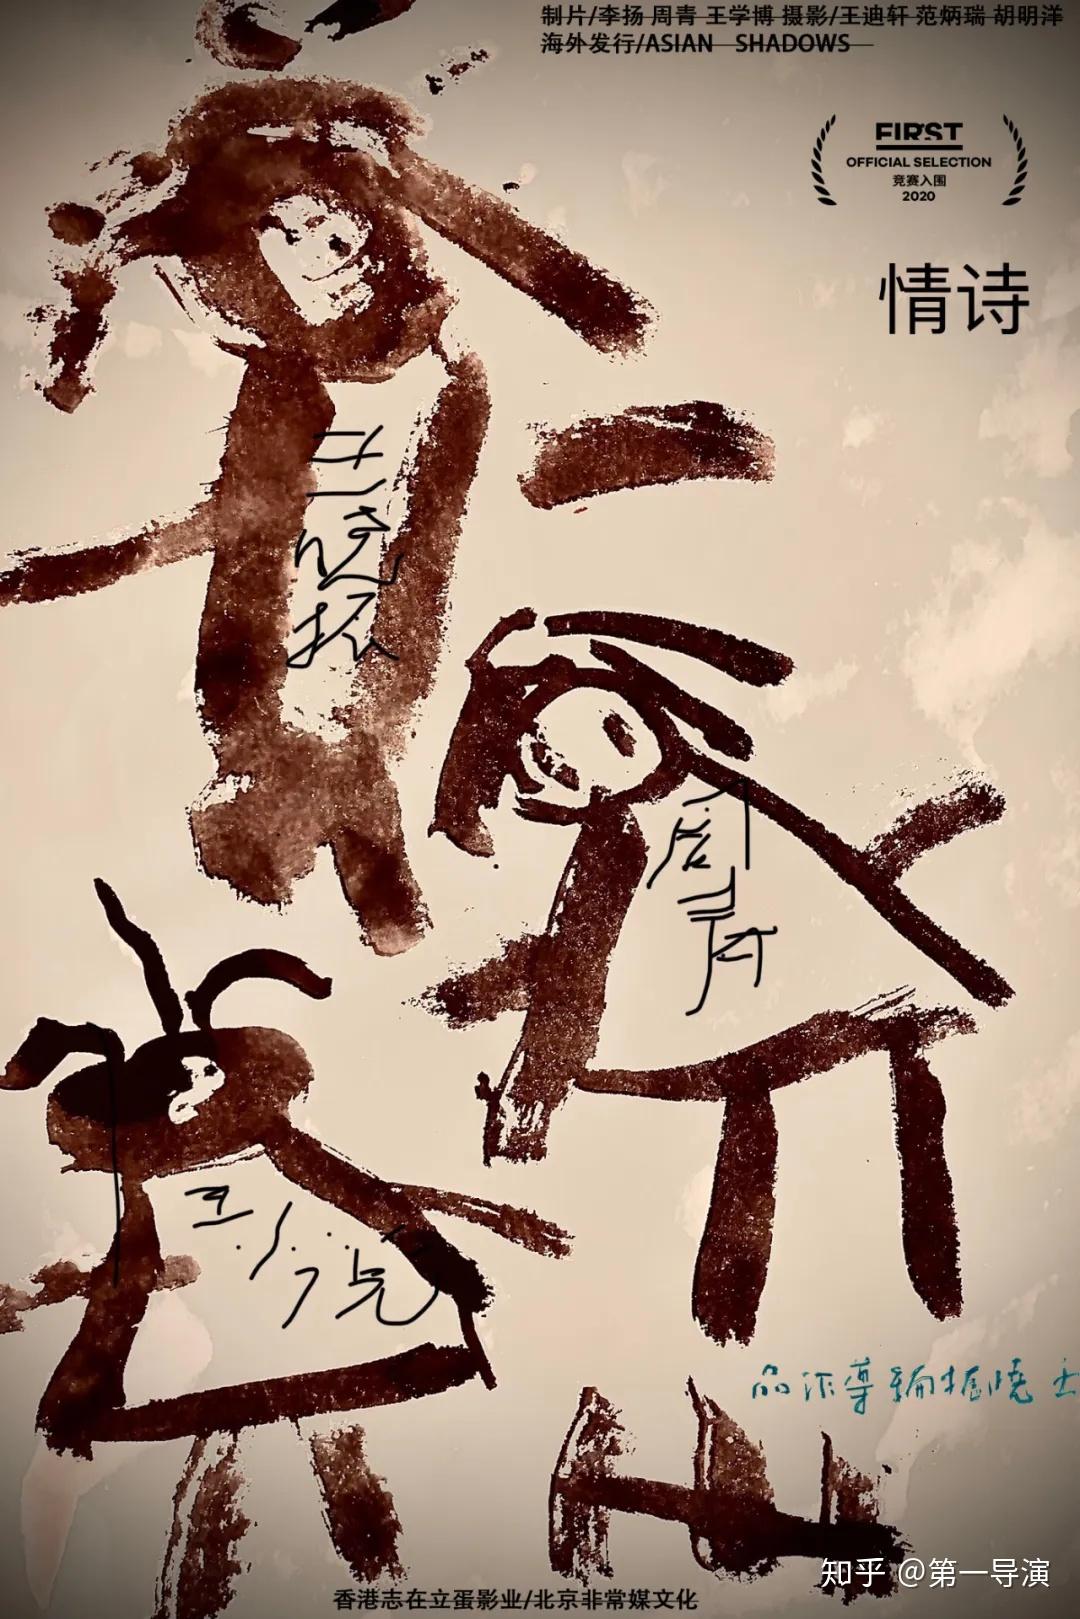 制片/李扬 周青 王学博 摄影/王迪轩 范炳瑞 胡明洋
海外发行/ASIAN SHADOWS
FIRST
OFFICIAL SELECTION
竞赛入围
2020
情诗
王晓振
周青
王
王曉振編導作品
知乎 @第一导演
香港志在立蛋影业/北京非常媒文化